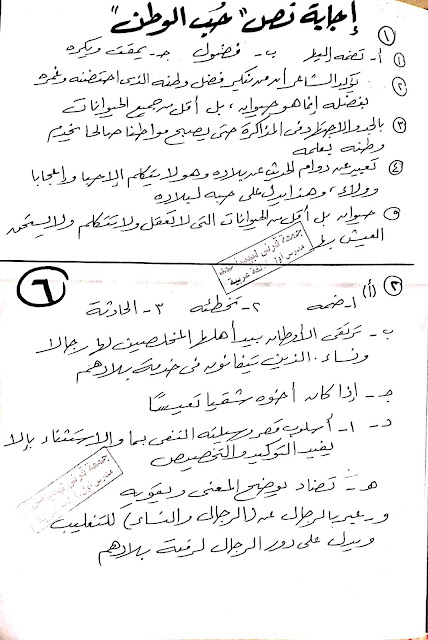 إجابة نص "حُب الوطن"
١
١ أ- تضمه إليها ب- فضول ج- يمقت ويكره
٢ يؤكد الشاعر أن من ينكر فضل وطنه الذى احتضنه وغمره
بفضله إنما هو حيوان، بل أقل من جميع الحيوانات
٣ بالجد والاجتهاد فى المذاكرة حتى يصبح مواطنا صالحا يخدم
وطنه بعلمه
٤ تعبير عن دوام الحديث عن بلاده وهو لا يتكلم إلا حبا وإعجابا
وولاء، وهذا يدل على حبه لبلاده
٥ حيوان بل أقل من الحيوانات التى لا تعقل ولا تتكلم ولا يستحق
العيش
٦
٢ (أ) ١- ضمه ٢- تخطئه ٣- الحادثة
ب- ترتقى الأوطان بيد أهلها المخلصين لها رجالا
ونساء. الذين يتفانون فى خدمة بلادهم
ج- إذا كان أخوه شقيا تعيسًا
د- ١- أسلوب قصر وسيلته النفى بما والاستثناء بإلا
يفيد التوكيد والتخصيص
هـ- تضاد يوضح المعنى ويقويه
و- عبر بالرجال عن (الرجال والنساء) للتغليب
ويدل على دور الرجال لرفعة بلادهم